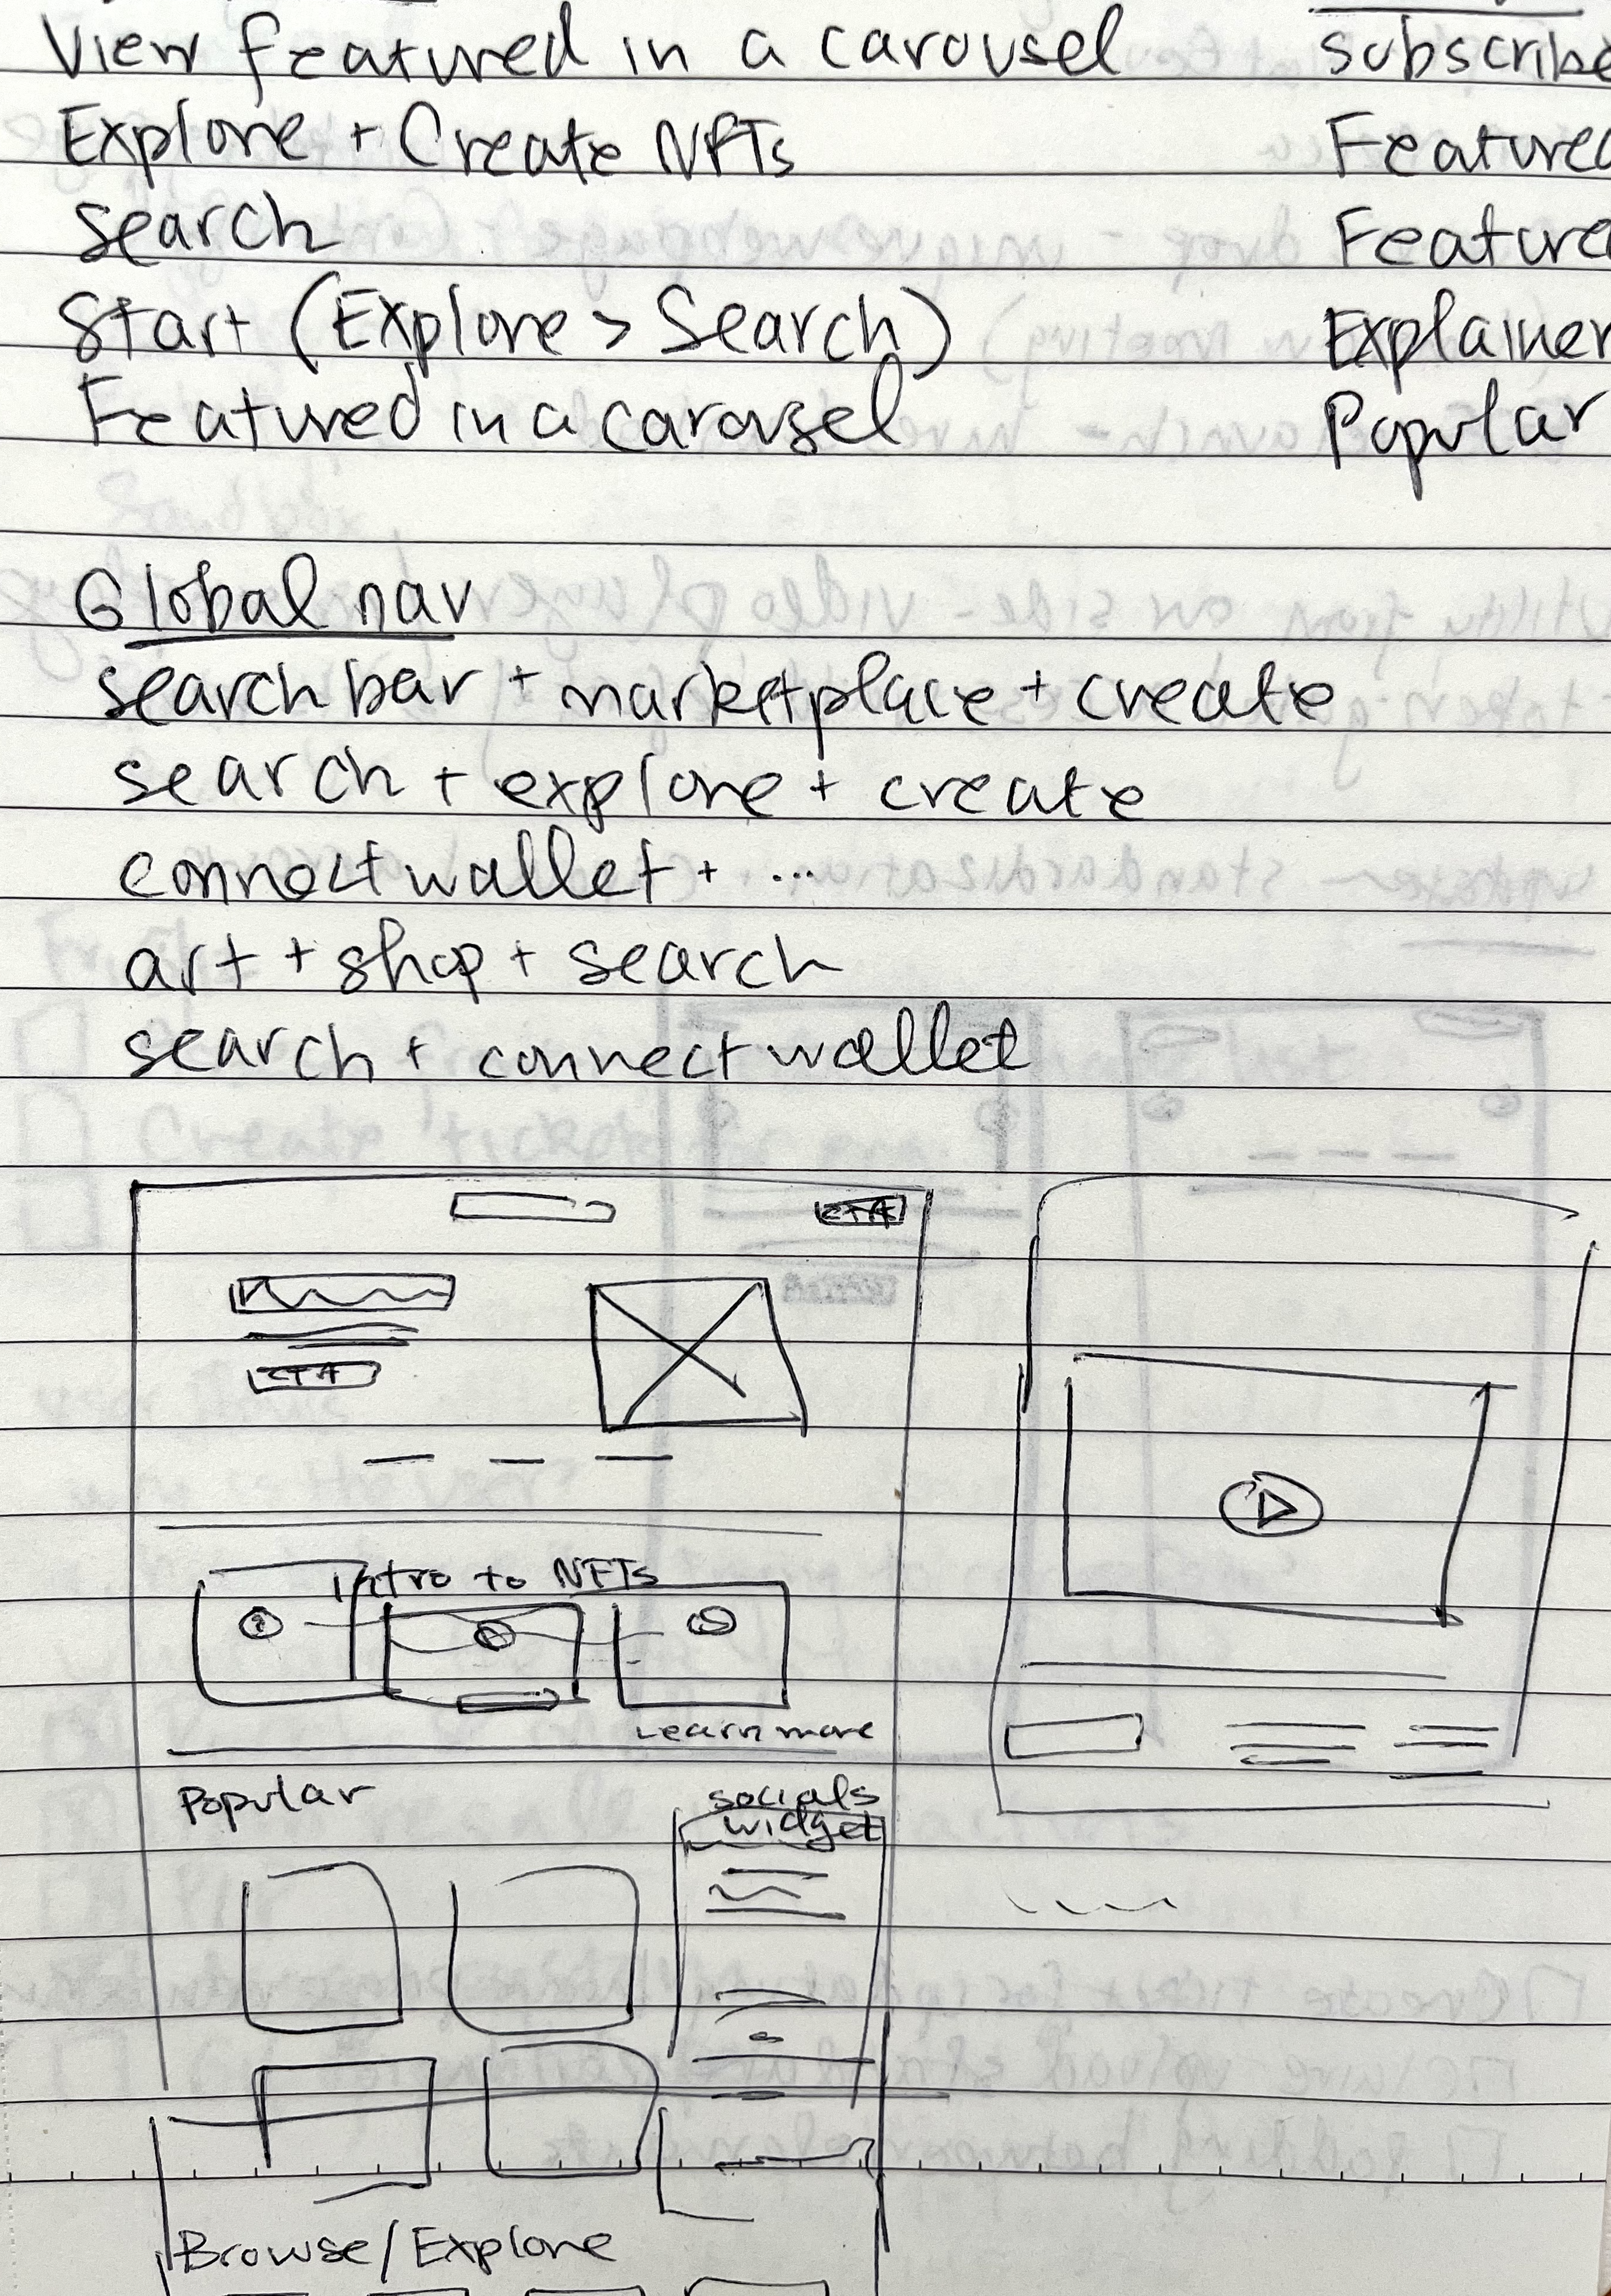 View featured in a carousel
Explore + Create NFTs
Search
Start (Explore > Search)
Featured in a carousel
subscribe
Featured
Feature
Explainer
Popular
Global nav
searchbar + marketplace + create
search + explore + create
connect wallet + ...
art + shop + search
search + connect wallet
CTA
CTA
Intro to NFTs
Learn more
Popular
socials
widget
Browse/Explore